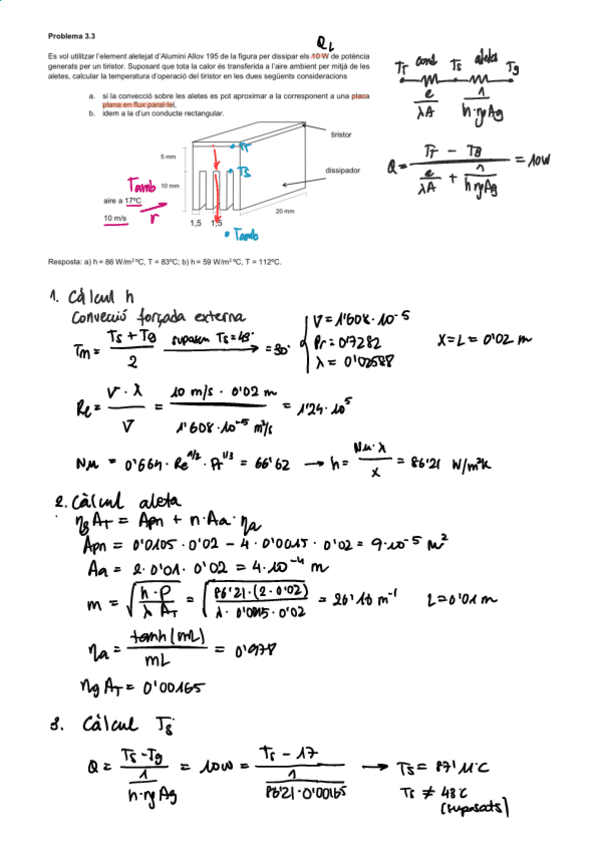 Problema 3.3
Q̇L
Es vol utilitzar l'element aletejat d'Alumini Allov 195 de la figura per dissipar els 10 W de potència
generats per un tiristor. Suposant que tota la calor és transferida a l'aire ambient per mitjà de les
aletes, calcular la temperatura d'operació del tiristor en les dues següents consideracions
a. si la convecció sobre les aletes es pot aproximar a la corresponent a una placa
plana en flux paral·lel,
b. idem a la d'un conducte rectangular.
TT cond TS aleta Tg
e/λA 1/h·ηAg
Q = (TT - TB)/(e/λA + 1/hηAg) = 10W
tiristor
TT
5 mm
TS
dissipador
10 mm
Tamb
aire a 17ºC
10 m/s
r
1,5 1,5
20 mm
Tamb
Resposta: a) h = 86 W/m² ºC, T = 83ºC; b) h = 59 W/m² ºC, T = 112ºC.
1. Càlcul h
Convecció forçada externa
Tm = (TS + TB)/2 suposem TS=43º = 30º
V = 1'608·10-5
Pr = 0'7282
λ = 0'02588
X=L = 0'02 m
Re = V·λ/V = 10 m/s · 0'02 m/1'608·10-5 m²/s = 1'24·10⁵
Nu = 0'664·Re1/2·Pr1/3 = 66'62 → h = Nu·λ/x = 86'21 W/m²K
2. Càlcul aleta
ηgAT = Apn + n·Aa·ηa
Apn = 0'0105·0'02 - 4·0'0015·0'02 = 9·10-5 m²
Aa = 2·0'01·0'02 = 4·10-4 m
m = √(h·P/λ AT) = √(86'21·(2·0'02)/λ·0'0015·0'02) = 26'16 m-1 L=0'01 m
ηa = tanh(mL)/mL = 0'978
ηgAT = 0'00165
3. Càlcul TS
Q = (TS - Tg)/(1/h·ηAg) = 10W = (TS - 17)/(1/86'21·0'00165) → TS = 87'11ºC
TS ≠ 43ºC
(suposats)